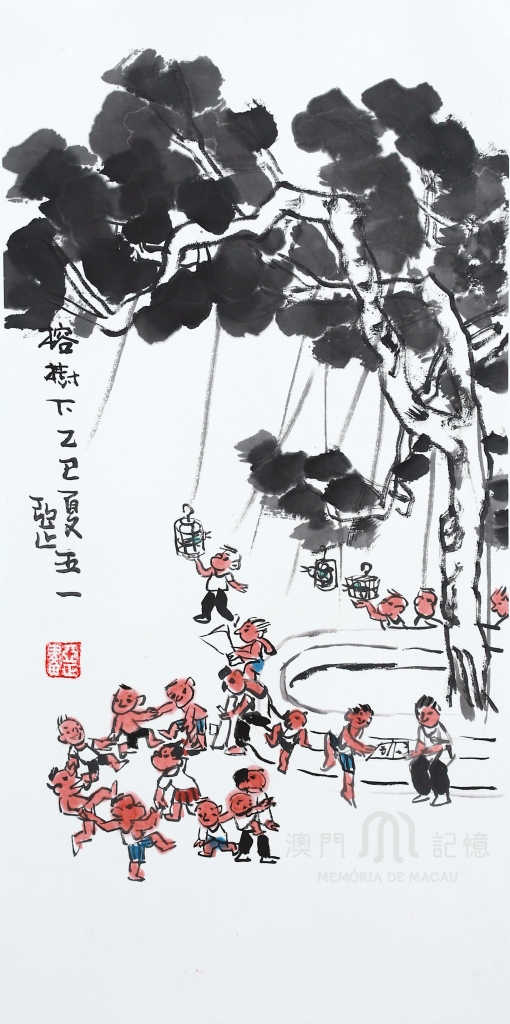 榕樹下乙巳夏五一
亞正
亞正
畫
澳門 記憶
MEMÓRIA DE MACAU